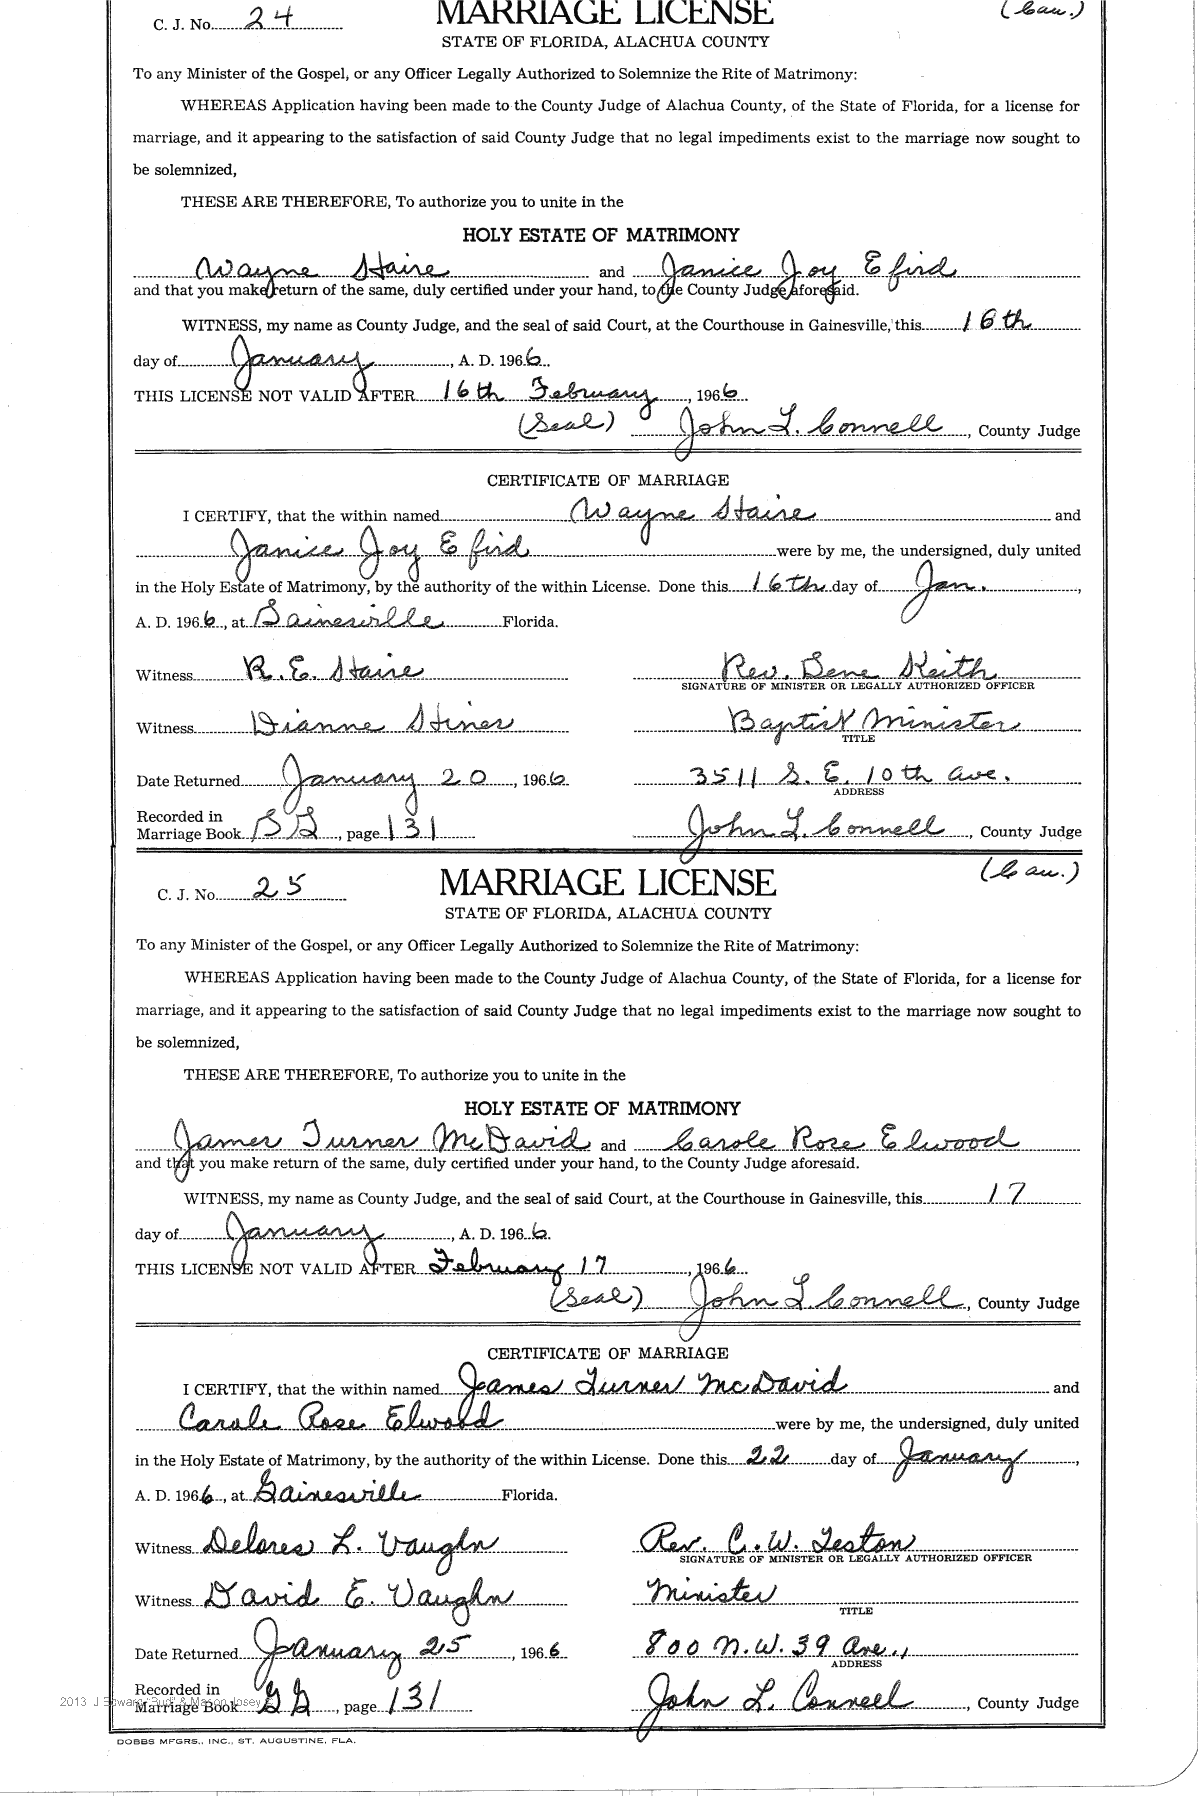 C. J. No. 24 MARRIAGE LICENSE (Cau.)
STATE OF FLORIDA, ALACHUA COUNTY
To any Minister of the Gospel, or any Officer Legally Authorized to Solemnize the Rite of Matrimony:
WHEREAS Application having been made to the County Judge of Alachua County, of the State of Florida, for a license for
marriage, and it appearing to the satisfaction of said County Judge that no legal impediments exist to the marriage now sought to
be solemnized,
THESE ARE THEREFORE, To authorize you to unite in the
HOLY ESTATE OF MATRIMONY
Wayne Staire and Janice Joy Efird
and that you make return of the same, duly certified under your hand, to the County Judge aforesaid.
WITNESS, my name as County Judge, and the seal of said Court, at the Courthouse in Gainesville, this 16th
day of January, A. D. 1966.
THIS LICENSE NOT VALID AFTER 16th February, 1966
(Seal) John L. Connell, County Judge
CERTIFICATE OF MARRIAGE
I CERTIFY, that the within named Wayne Staire and
Janice Joy Efird were by me, the undersigned, duly united
in the Holy Estate of Matrimony, by the authority of the within License. Done this 16th day of Jan.,
A. D. 1966, at Gainesville Florida.
Witness R. E. Staire Rev. Gene Keith
SIGNATURE OF MINISTER OR LEGALLY AUTHORIZED OFFICER
Witness Dianne Stiner Baptist Minister
TITLE
Date Returned January 20, 1966 3511 S. E. 10th Ave.
ADDRESS
Recorded in
Marriage Book GG, page 131 John L. Connell, County Judge
C. J. No. 25 MARRIAGE LICENSE (Cau.)
STATE OF FLORIDA, ALACHUA COUNTY
To any Minister of the Gospel, or any Officer Legally Authorized to Solemnize the Rite of Matrimony:
WHEREAS Application having been made to the County Judge of Alachua County, of the State of Florida, for a license for
marriage, and it appearing to the satisfaction of said County Judge that no legal impediments exist to the marriage now sought to
be solemnized,
THESE ARE THEREFORE, To authorize you to unite in the
HOLY ESTATE OF MATRIMONY
James Turner McDavid and Carole Rose Elwood
and that you make return of the same, duly certified under your hand, to the County Judge aforesaid.
WITNESS, my name as County Judge, and the seal of said Court, at the Courthouse in Gainesville, this 17
day of January, A. D. 1966.
THIS LICENSE NOT VALID AFTER February 17, 1966
(Seal) John L. Connell, County Judge
CERTIFICATE OF MARRIAGE
I CERTIFY, that the within named James Turner McDavid and
Carole Rose Elwood were by me, the undersigned, duly united
in the Holy Estate of Matrimony, by the authority of the within License. Done this 22 day of January,
A. D. 1966, at Gainesville Florida.
Witness Delores L. Vaughn Rev. C. W. Teston
SIGNATURE OF MINISTER OR LEGALLY AUTHORIZED OFFICER
Witness David E. Vaughn Minister
TITLE
Date Returned January 25, 1966 800 N.W. 39 Ave.,
ADDRESS
Recorded in
Marriage Book GG, page 131 John L. Connell, County Judge
2013 J Edward "Bud" & Mason Josey
DOBBS MFGRS., INC., ST. AUGUSTINE, FLA.